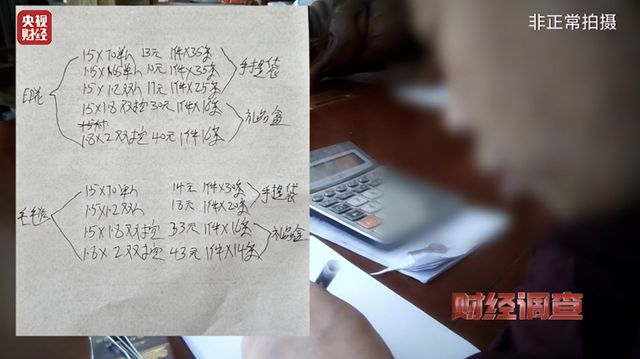 央视
财经
非正常拍摄
印花
1.5×70单人 13元 1件×35条
10元 1件×35条
1.5×1.2双人 17元 1件×25条
手提袋
1.5×1.8双控 30元 1件×16条
1.8×2双控 40元 1件16条
礼品盒
1.5×70单人 14元 1件×30条
1.5×1.2双人 18元 1件×20条
手提袋
1.5×1.8双控 33元 1件×16条
1.8×2双控 43元 1件×14条
礼品盒
财经调查